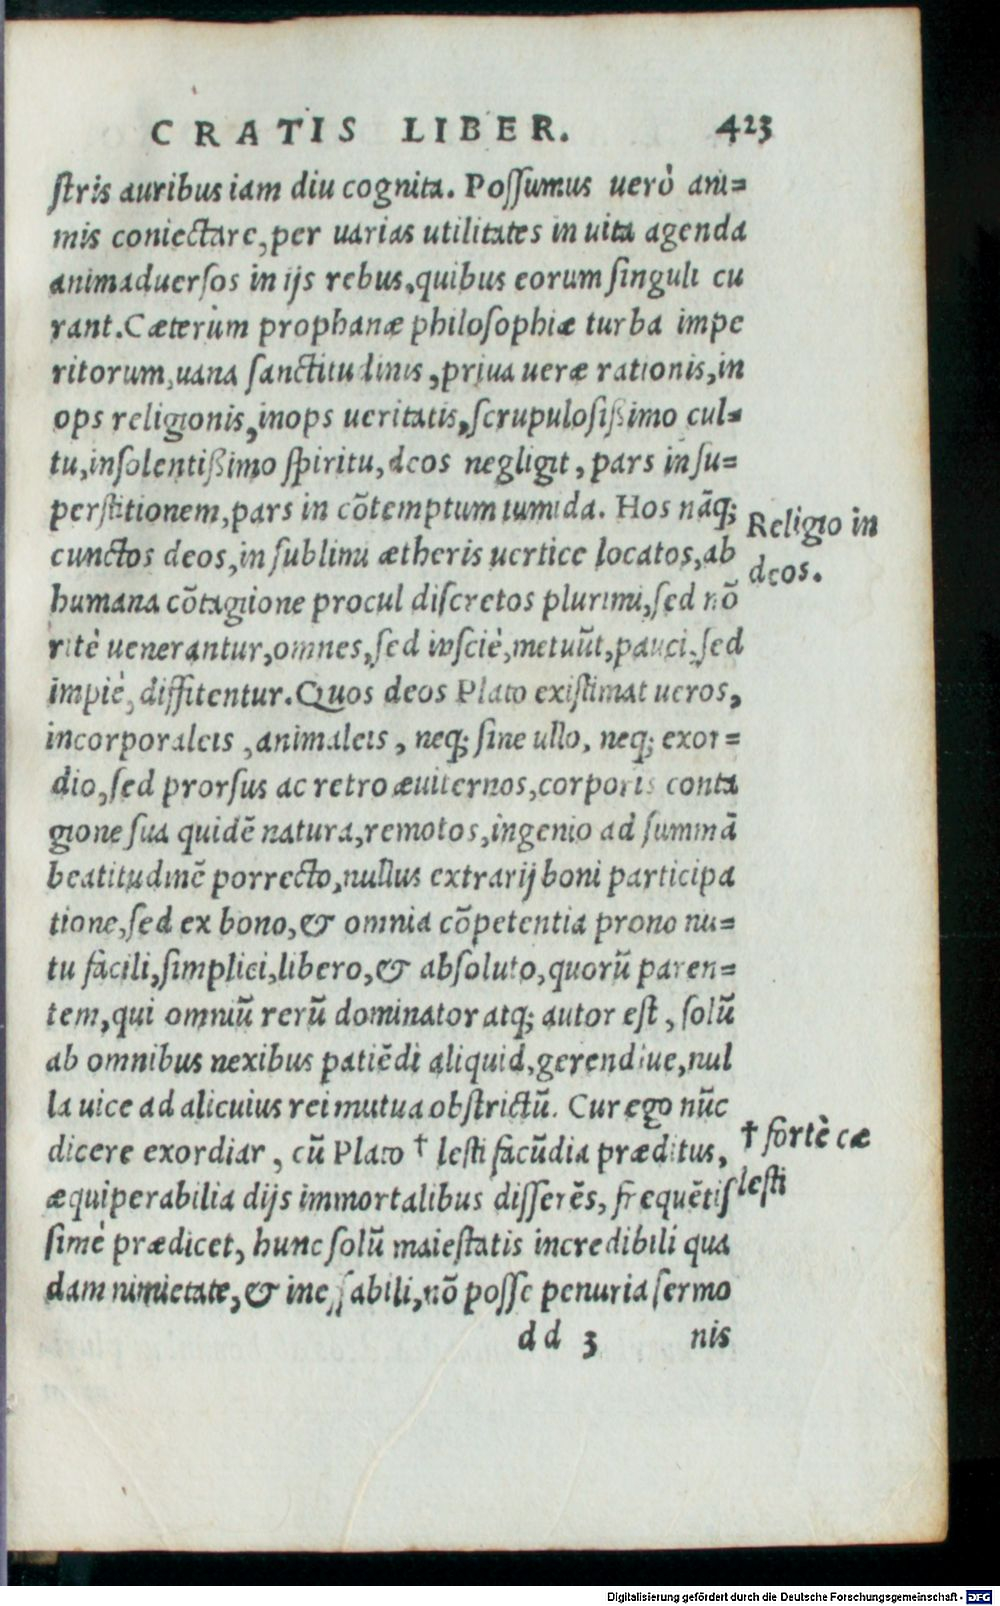 CRATIS LIBER. 423
ſtris auribus iam diu cognita. Poſſumus uerò ani=
mis coniectare, per uarias utilitates in uita agenda
animaduerſos in ijs rebus, quibus eorum ſinguli cu
rant. Cæterùm prophanæ philoſophiæ turba impe
ritorum, uana ſanctitudinis, priua ueræ rationis, in
ops religionis, inops ueritatis, ſcrupuloſißimo cul=
tu, inſolentißimo ſpiritu, deos negligit, pars in ſu=
perſtitionem, pars in cõtemptum tumida. Hos nãq;
Religio in
cunctos deos, in ſublimi ætheris uertice locatos, ab
deos.
humana cõtagiione procul diſcretos plurimi, ſed nõ
ritè uenerantur, omnes, ſed inſciè, metuũt, pauci, ſed
impiè, diffitentur. Quos deos Plato exiſtimat ueros,
incorporaleis, animaleis, neq; ſine ullo, neq; exor=
dio, ſed prorſus ac retro æuiternos, corporis conta
gione ſua quidẽ natura, remotos, ingenio ad ſummã
beatitudinẽ porrecto, nullus extrarij boni participa
tione, ſed ex bono, & omnia cõpetentia prono nu=
tu facili, ſimplici, libero, & abſoluto, quorũ paren=
tem, qui omniũ rerũ dominator atq; autor eſt, ſolũ
ab omnibus nexibus patiẽdi aliquid, gerendiue, nul
la uice ad alicuius rei mutua obſtrictũ. Cur ego nũc
dicere exordiar, cũ Plato † leſti facũdia præditus,
† fortè cæ
leſti
æquiperabilia dijs immortalibus diſſerẽs, frequẽtiſ
ſimè prædicet, hunc ſolũ maieſtatis incredibili qua
dam nimietate, & ineffabili, nõ poſſe penuria ſermo
dd 3 nis
Digitalisierung gefördert durch die Deutsche Forschungsgemeinschaft - DFG